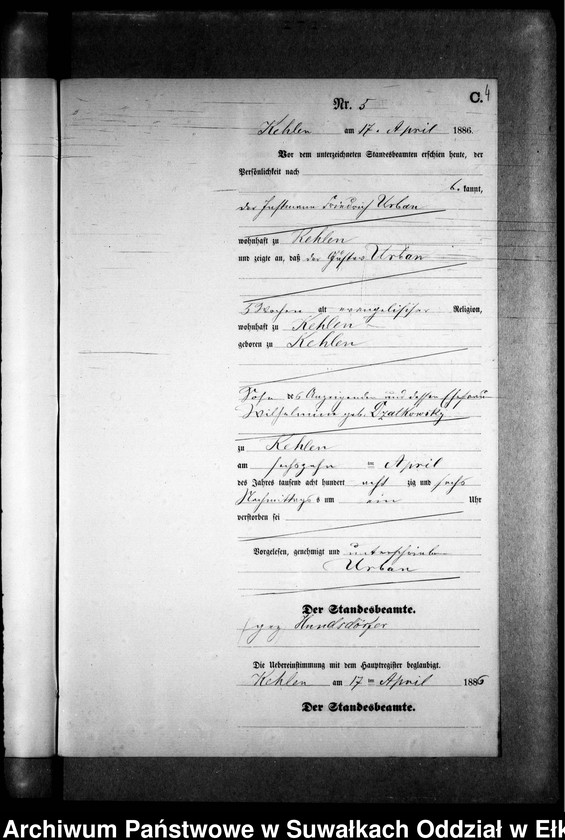 C. 4
Nr. 5
Kehlen am 17. April 1886.
Vor dem unterzeichneten Standesbeamten erschien heute, der
Persönlichkeit nach
be kannt,
der Instmann Friedrich Urban
wohnhaft zu Kehlen
und zeigte an, daß der Gustav Urban
5 Wochen alt evangelischer Religion,
wohnhaft zu Kehlen
geboren zu Kehlen
Sohn des Anzeigenden und dessen Ehefrau
Wilhelmine geb.
zu Kehlen
am sechszehn ten April
des Jahres tausend acht hundert acht zig und sechs
Nachmittags um ein Uhr
verstorben sei
Vorgelesen, genehmigt und unterschrieben
Urban
Der Standesbeamte.
gez. Hundsdörfer
Die Uebereinstimmung mit dem Hauptregister beglaubigt.
Kehlen am 17 ten April 1886
Der Standesbeamte.
Archiwum Państwowe w Suwałkach Oddział w Ełk